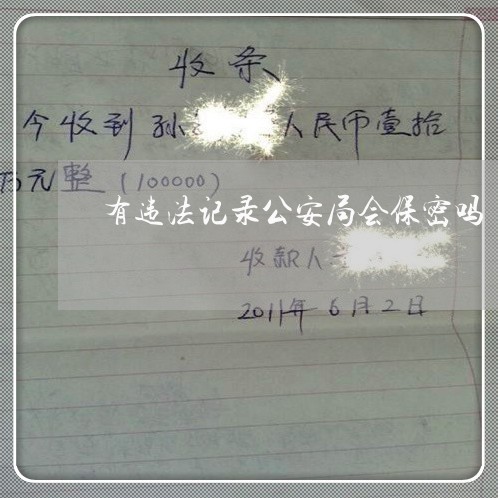 收条
今收到孙 人民币壹拾
万元整(100000)
有违法记录公安局会保密吗
收款人
2011年6月2日